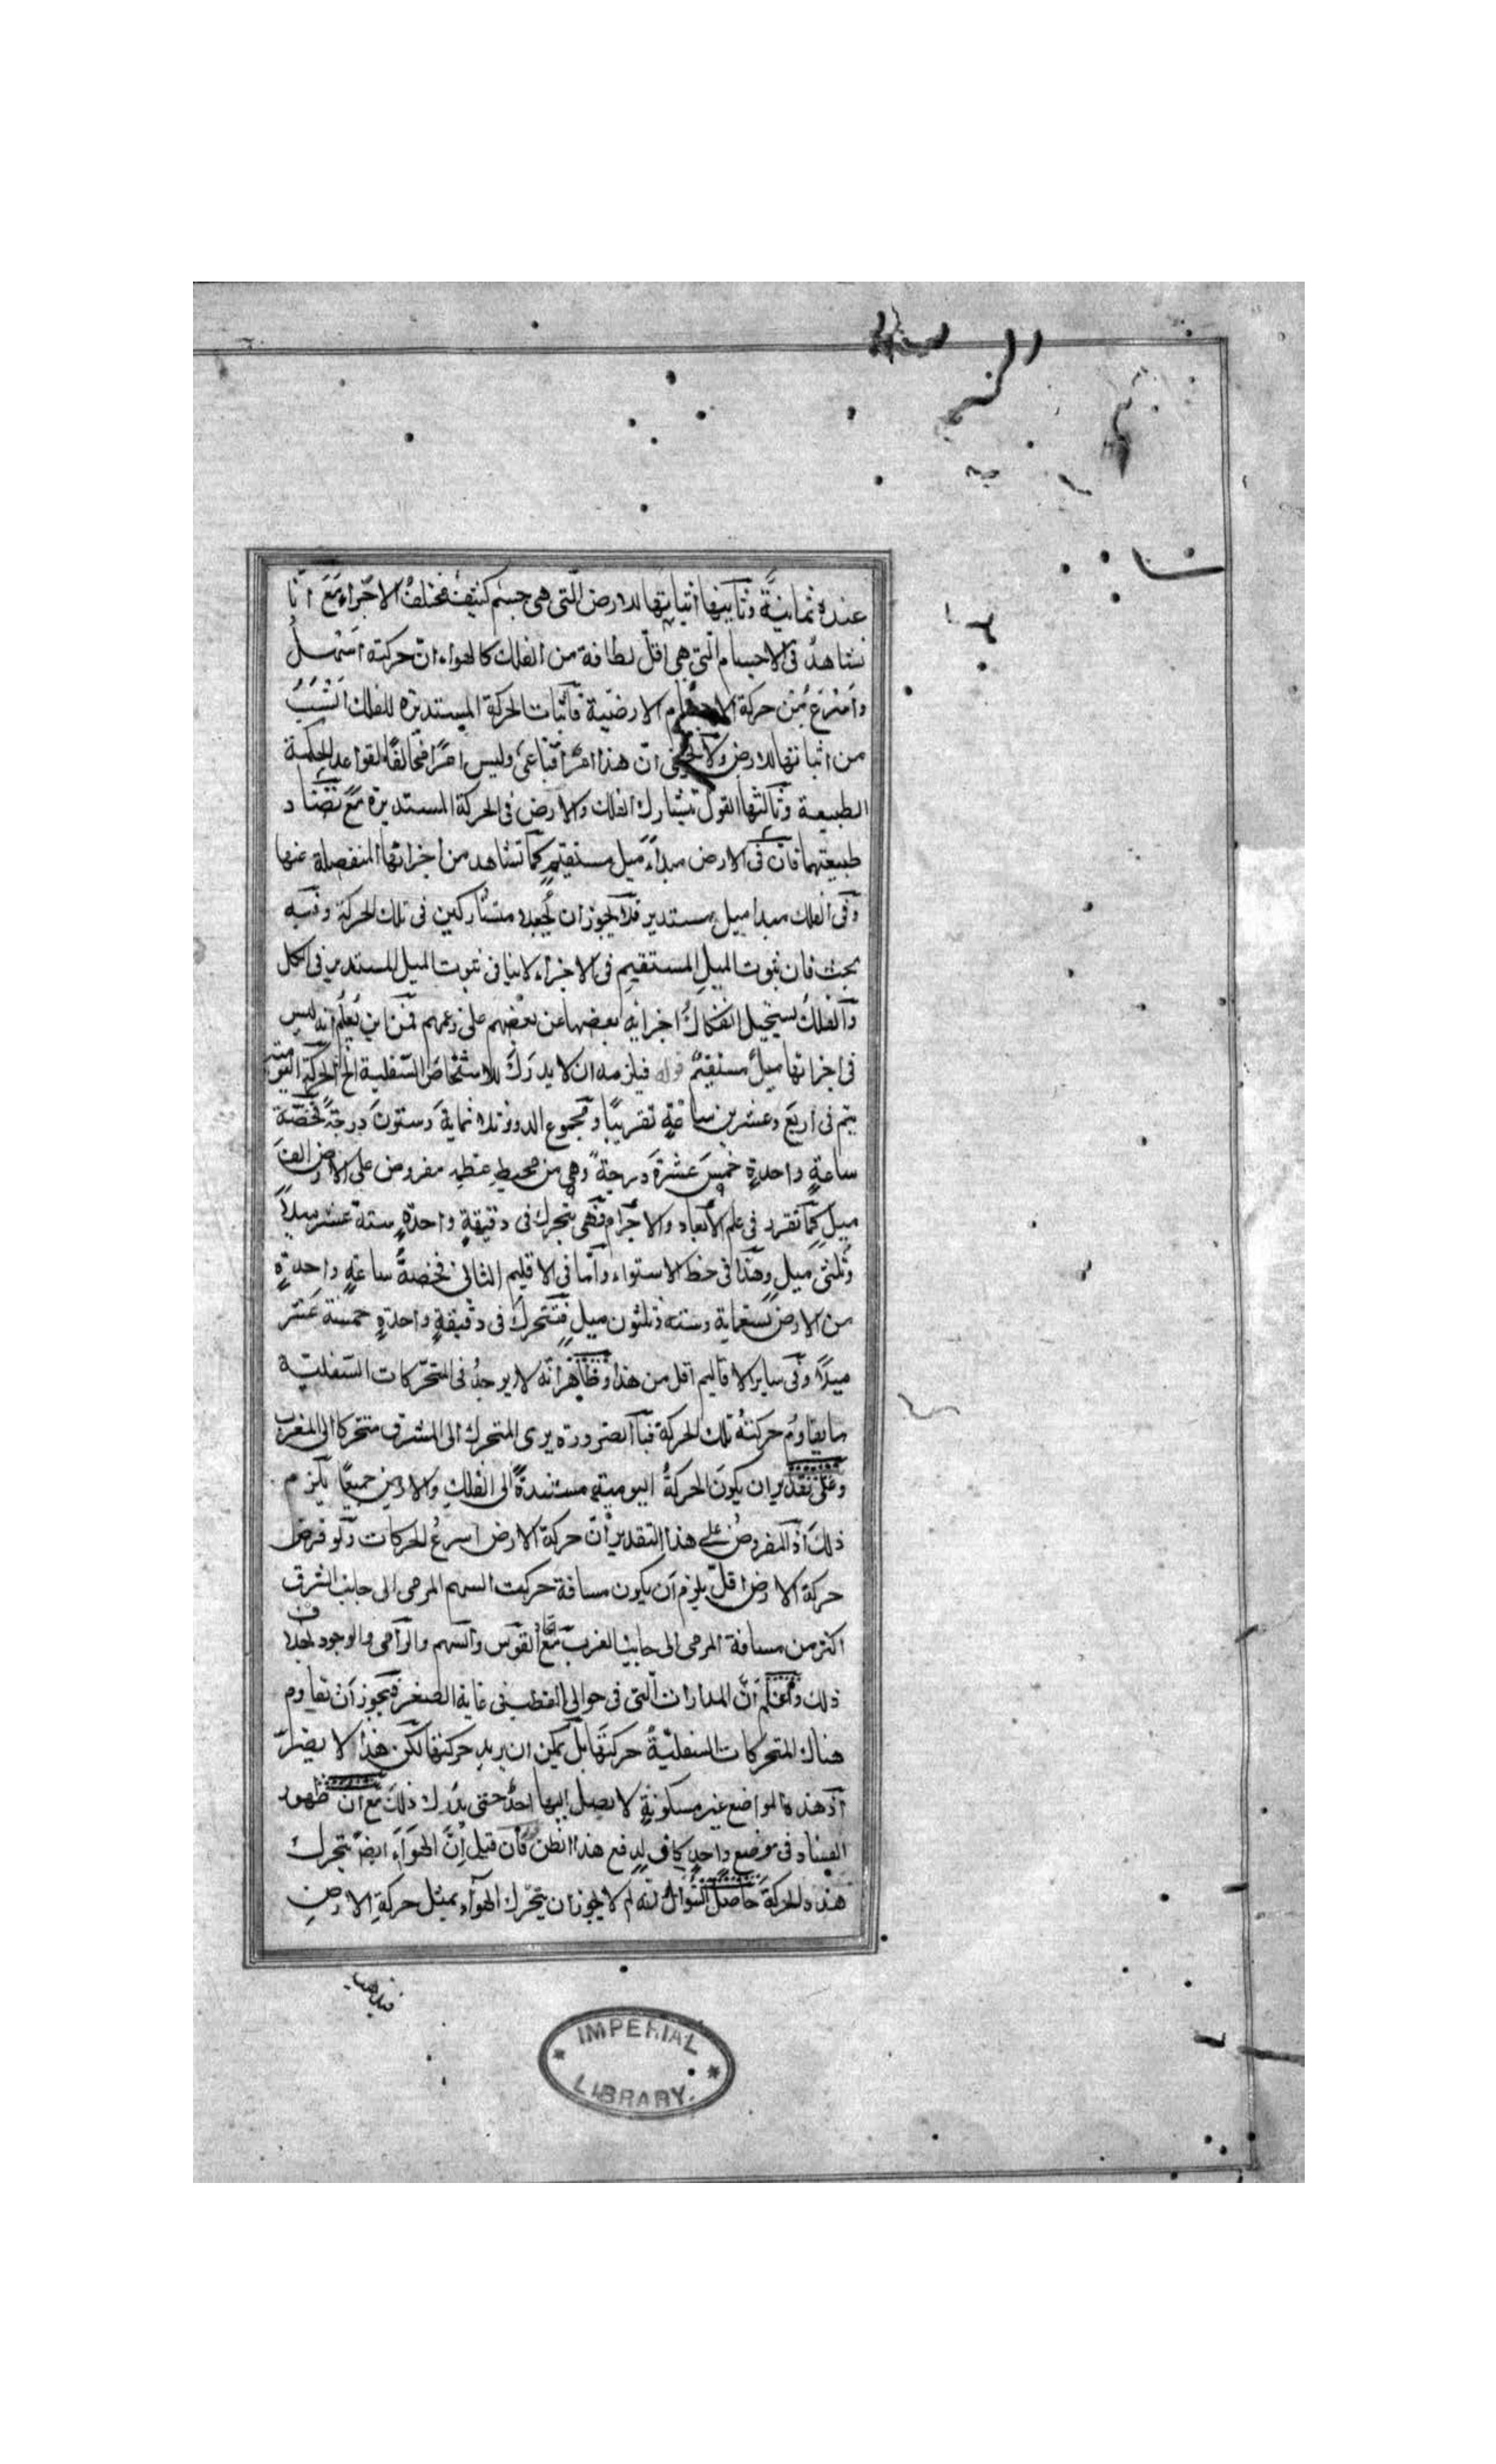 عنده ثمانية وثانيها اثباتها للارض التي هي جسم كثيف مختلف الاجزاء مع انا
نشاهد في الاجسام التي هي اقل لطافة من الفلك كالهواء ان حركته اسهل
واسرع من حركة الاجسام الارضية فاثبات الحركة المستديرة للفلك انسب
من اثباتها للارض ولا يخفى ان هذا امر اقناعي وليس امرا مخالفا لقواعد الحكمة
الطبيعية وثالثها القول بتشارك الفلك والارض في الحركة المستديرة مع تضاد
طبيعتهما فان في الارض مبداء ميل مستقيم كما نشاهد من اجزائها المنفصلة عنها
وفي الفلك مبدا ميل مستدير فلا يجوز ان يجعلا متشاركين في تلك الحركة وفيه
بحث فان ثبوت الميل المستقيم في الاجزاء لا ينافي ثبوت الميل المستدير في الكل
والفلك يستحيل انفكاك اجزائه بعضها عن بعضهم على زعمهم فمن اين يعلم انه ليس
في اجزائها ميل مستقيم قوله فيلزمه ان لا يدرك للاشخاص السفلية الخ الحركة اليومية
يتم في اربع وعشرين ساعة تقريبا ومجموع الدور ثلاثماية وستون درجة فحصة
ساعة واحدة خمس عشرة درجة وهي من محيط عظيمة مفروض على الارض الف
ميل كما تقرر في علم الابعاد والاجرام فهي يتحرك في دقيقة واحدة ستة عشر ميلا
وثلثي ميل وهذا في خط الاستواء واما في الاقليم الثالث فحصة ساعة واحدة
من الارض تسعماية وستة وثلثون ميل فتتحرك في دقيقة واحدة خمسة عشر
ميلا وفي ساير الاقاليم اقل من هذا وظاهر انه لا يوجد في المتحركات السفلية
ما يقاوم حركته تلك الحركة فبالضرورة يرى المتحرك الى المشرق متحركا الى المغرب
وعلى تقدير ان يكون الحركة اليومية مستندة الى الفلك والارض جميعا يلزم
ذلك اذ المفروض على هذا التقدير ان حركة الارض اسرع الحركات ولو فرض
حركة الارض اقل يلزم ان يكون مسافة حركت السهم المرمي الى جانب الشرق
اكثر من مسافة المرمي الى جانب الغرب مع اتحاد القوس والسهم والرامي والوجود بخلاف
ذلك واعلم ان المدارات التي في حوالي القطبين في غاية الصغر فيجوز ان تقاوم
هناك المتحركات السفلية حركتها بل يمكن ان يزيد حركتها لكن هذا لا يضر
اذ هذه المواضع غير مسكونة لا يصل اليها احد حتى يدرك ذلك مع ان ظهور
الفساد في موضع واحد كاف لدفع هذا الظن فان قيل ان الهواء ايضا يتحرك
هذه الحركة حاصل السؤال انه لم لا يجوز ان يتحرك الهواء بمثل حركة الارض
IMPERIAL
LIBRARY.